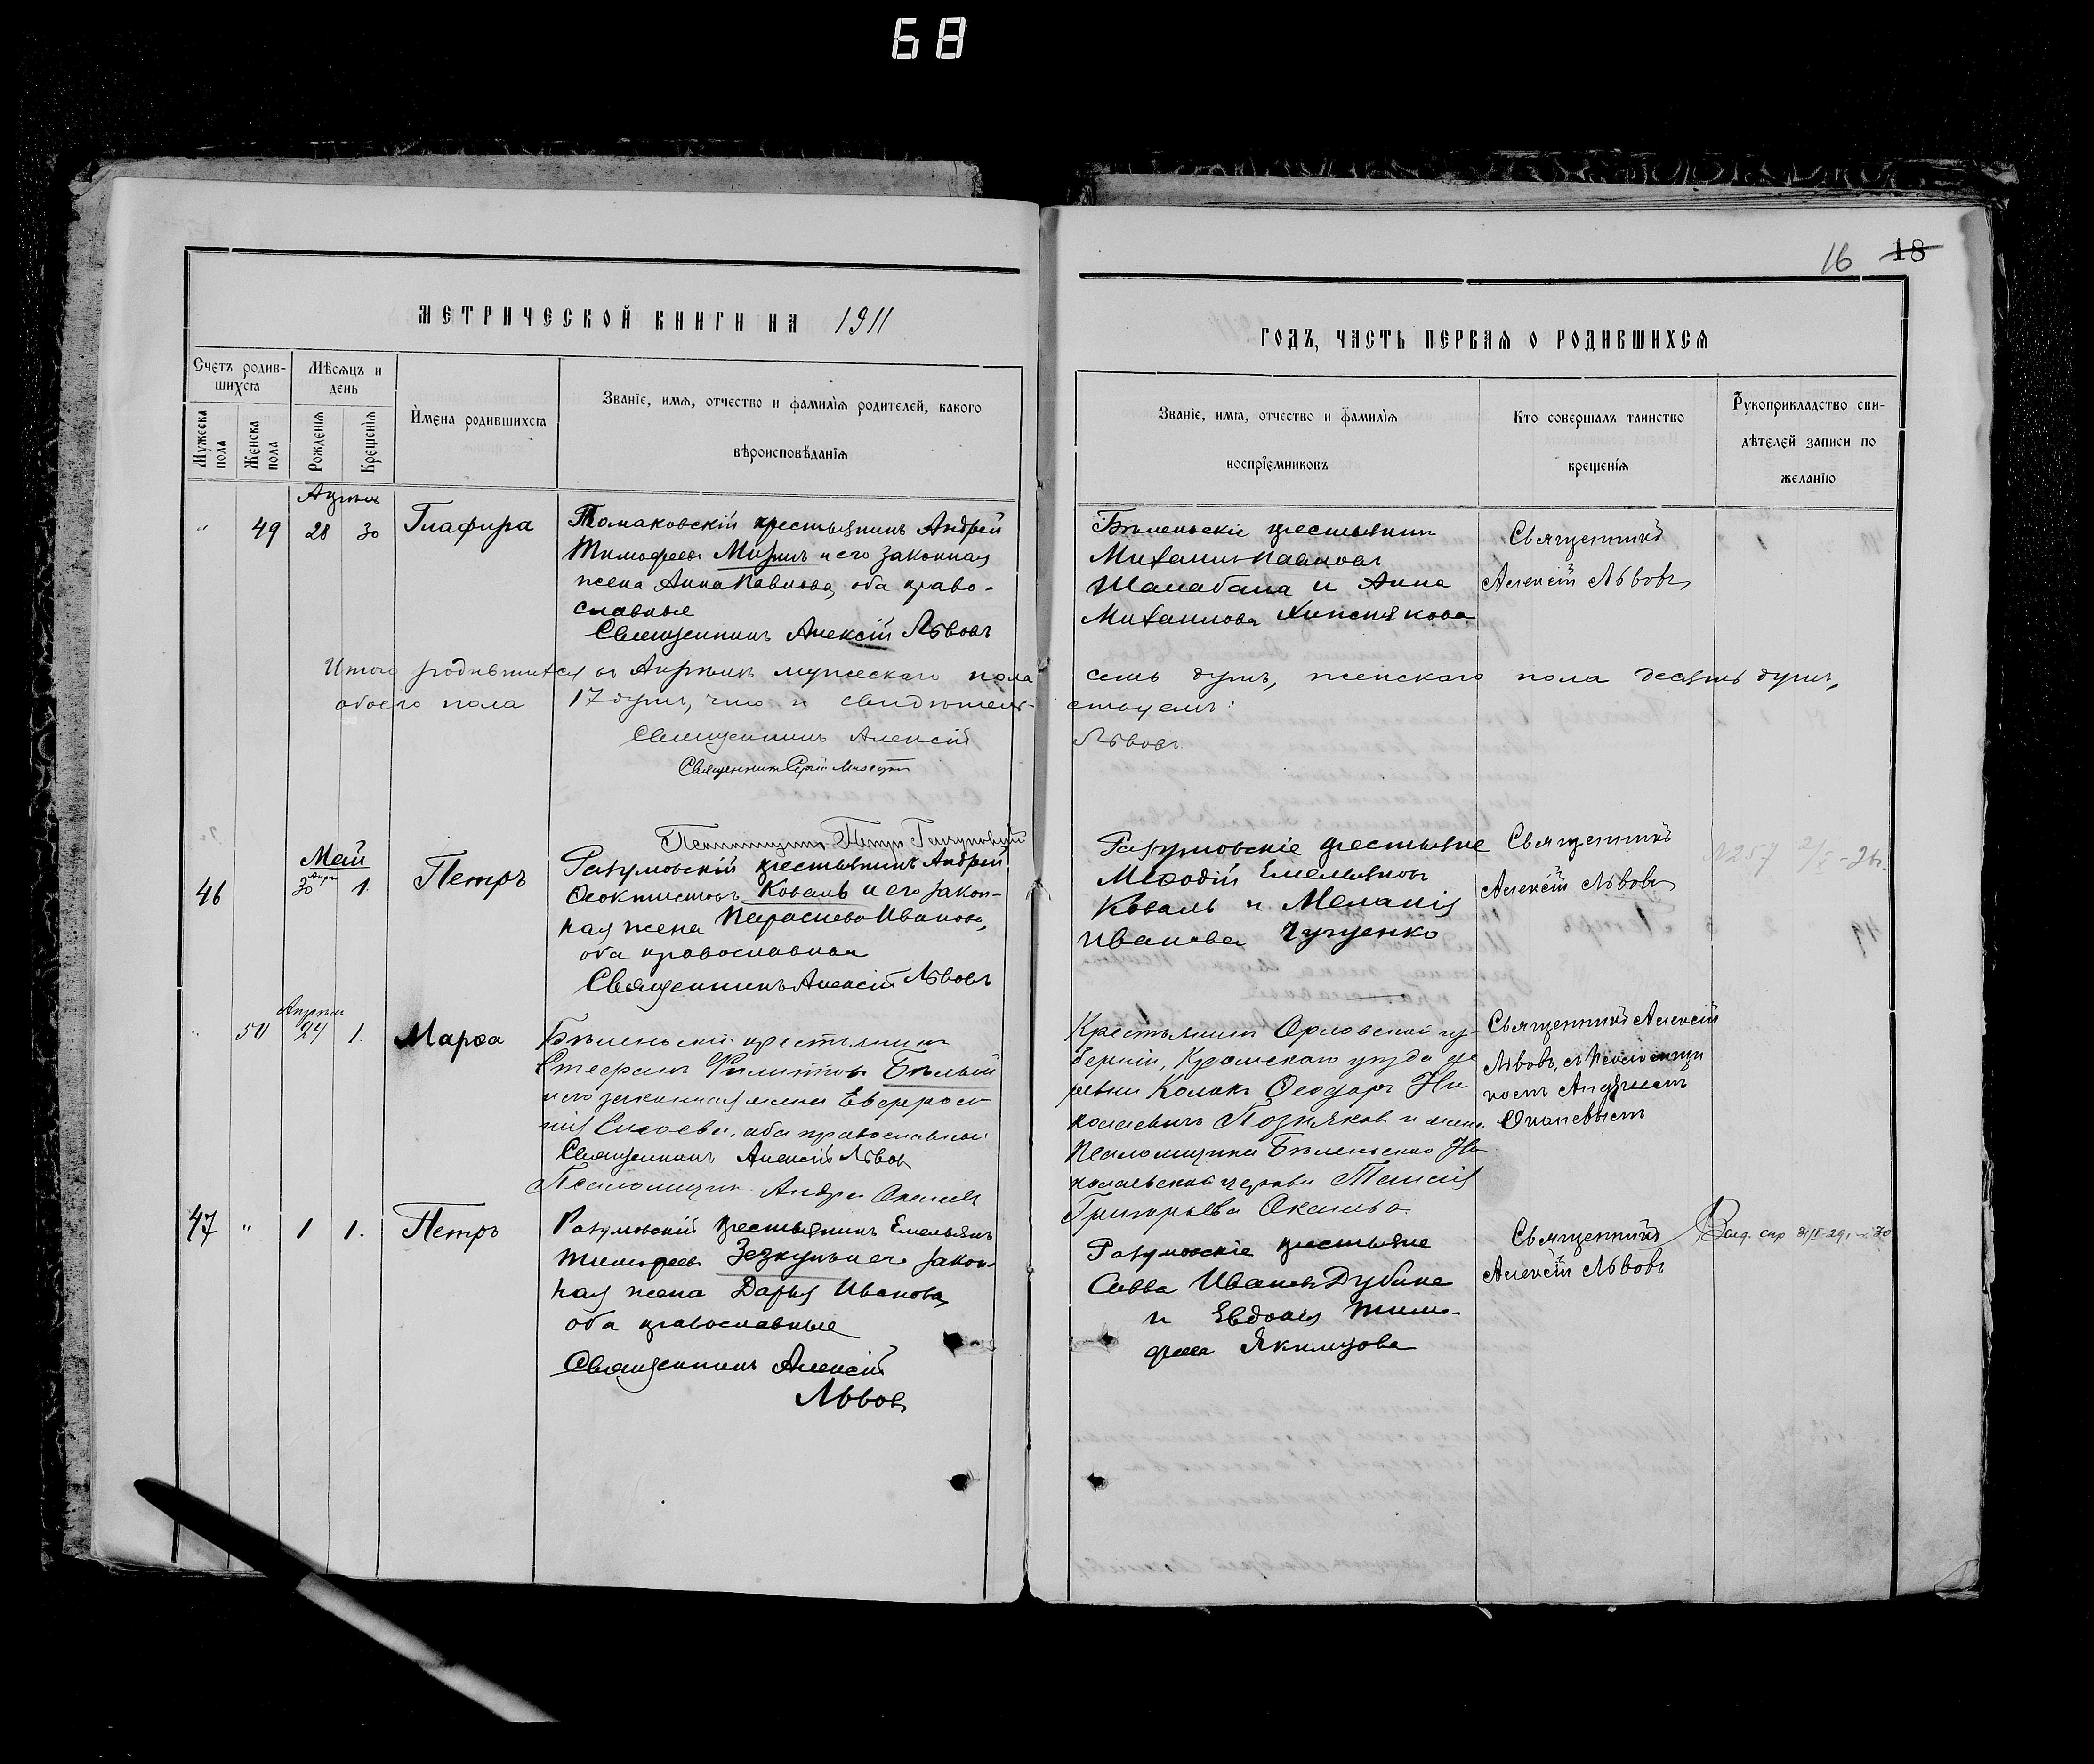 68
16 18
МЕТРИЧЕСКОЙ КНИГИ НА 1911
ГОДЪ, ЧАСТЬ ПЕРВАЯ О РОДИВШИХСЯ
Счетъ родив-
шихся
Мужеска пола
Женска пола
Мѣсяцъ и
день
Рожденія
Крещенія
Имена родившихся
Званіе, имя, отчество и фамилія родителей, какого
вѣроисповѣданія
Званіе, имя, отчество и фамилія
воспріемниковъ
Кто совершалъ таинство
крещенія
Рукоприкладство сви-
дѣтелей записи по
желанію
Апрѣль
" 49 28 30 Глафира
Томаковскій крестьянинъ Андрей
Тимофеевъ и его законная
жена Анна Павлова, оба право-
славные
Священникъ Алексій Львовъ
Бѣленьскіе крестьяне
Михаилъ Павловъ
Шалабана и Анна
Михаилова
Священникъ
Алексій Львовъ
Итого родившихся въ Апрѣлѣ мужескаго пола семь душъ, женскаго пола десять душъ,
обоего пола 17 душъ, что и свидѣтельствуемъ:
Священникъ Алексій Львовъ
Священникъ Сергій
Май
46 30 Апр 1. Петръ
Разумовскій крестьянинъ Андрей
Ѳеоктистовъ Коваль и его закон-
ная жена Параскева Иванова,
оба православные
Священникъ Алексій Львовъ
Разумовскіе крестьяне
Меѳодій Емельяновъ
Коваль и Меланія
Иванова
Священникъ
Алексій Львовъ
N 257
Апрѣля
" 50 24 1. Марѳа
Бѣленьскій крестьянинъ
Стефанъ Филипповъ Бѣлый
и его законная жена Евфроси-
нія Сисоева, оба православные
Священникъ Алексій Львовъ
Псаломщикъ Андрей
Крестьянинъ Орловской гу-
берніи, Кромскаго уѣзда де
ревни Ѳеодоръ Ни
колаевичъ Позняковъ и жена
псаломщика Бѣленьской Ни
колаевской церкви
Григорьева
Священникъ Алексій
Львовъ, съ псаломщи
комъ Андреемъ
47 " 1 1. Петръ
Разумовскій крестьянинъ Емельянъ
Тимофеевъ и его закон-
ная жена Дарья Иванова,
оба православные
Священникъ Алексій
Львовъ
Разумовскіе крестьяне
Савва Ивановъ Дубина
и Евдокія Тимо-
феева Якимцова
Священникъ
Алексій Львовъ